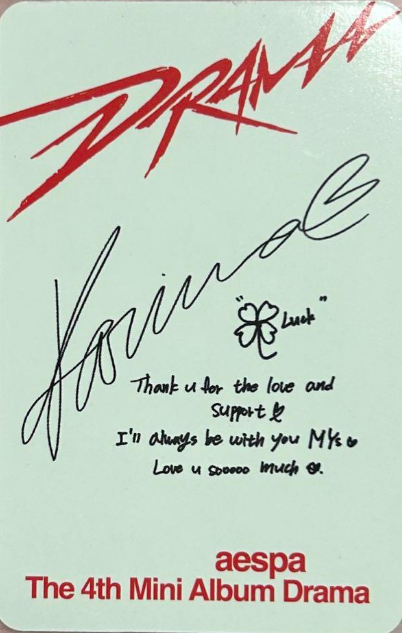 DRAMA
Karina
"🍀 Luck"
Thank u for the love and
support ♡
I'll always be with you MYs ♡
Love u sooooo much ♡.
aespa
The 4th Mini Album Drama